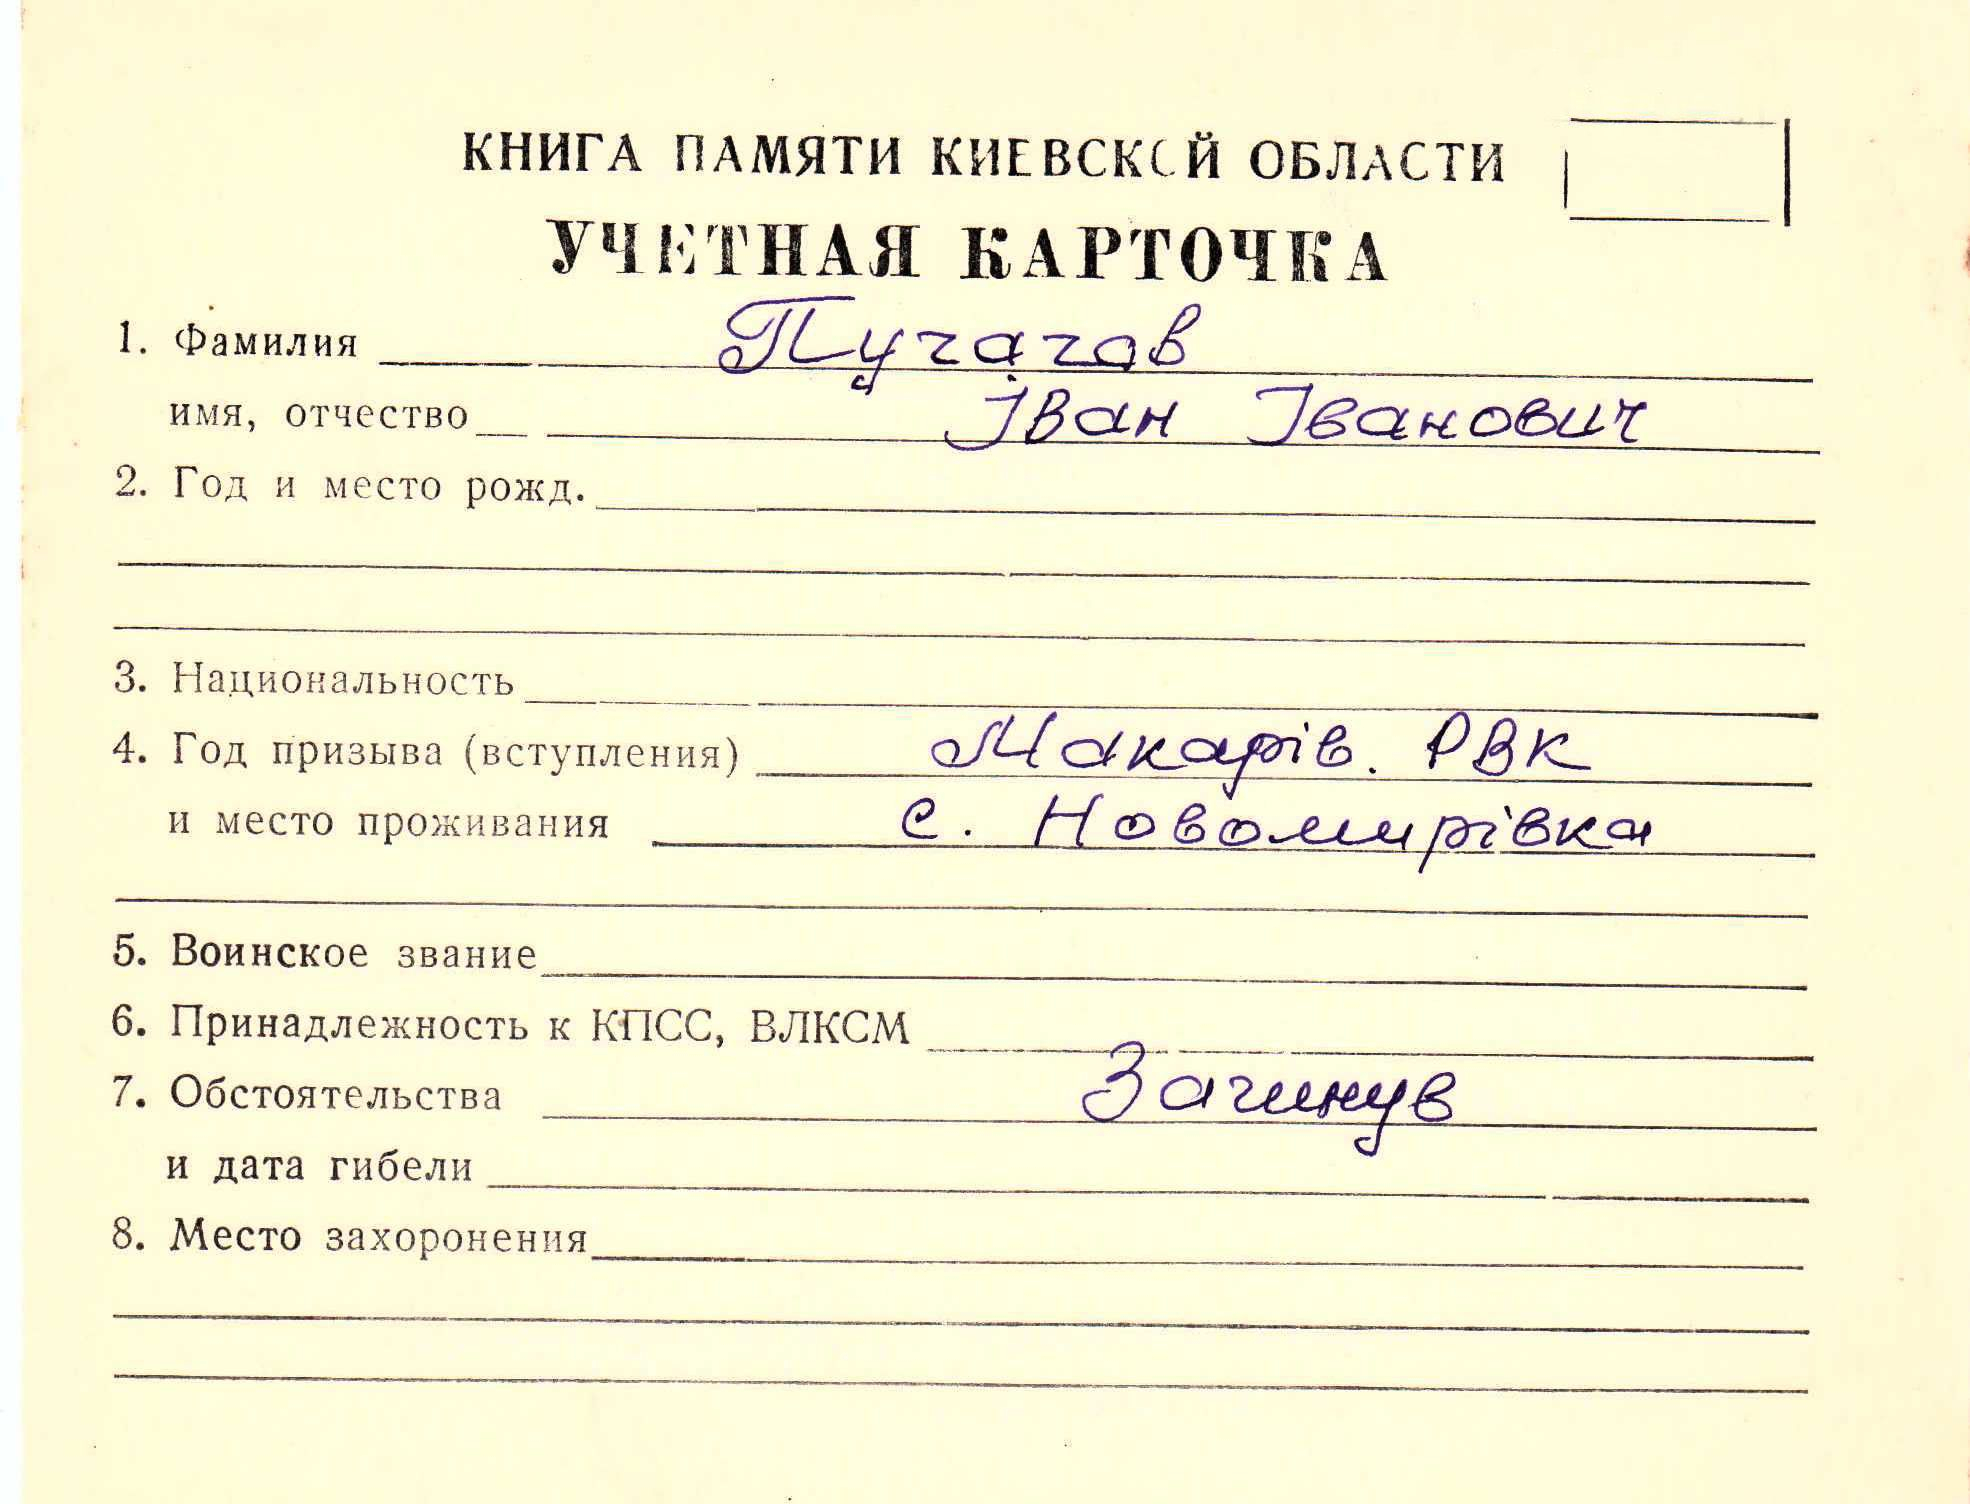 КНИГА ПАМЯТИ КИЕВСКОЙ ОБЛАСТИ
УЧЕТНАЯ КАРТОЧКА
1. Фамилия Пугагов
имя, отчество Іван Іванович
2. Год и место рожд.
3. Национальность
4. Год призыва (вступления) Макарів. РВК
и место проживания с. Новомирівка
5. Воинское звание
6. Принадлежность к КПСС, ВЛКСМ
7. Обстоятельства Загинув
и дата гибели
8. Место захоронения